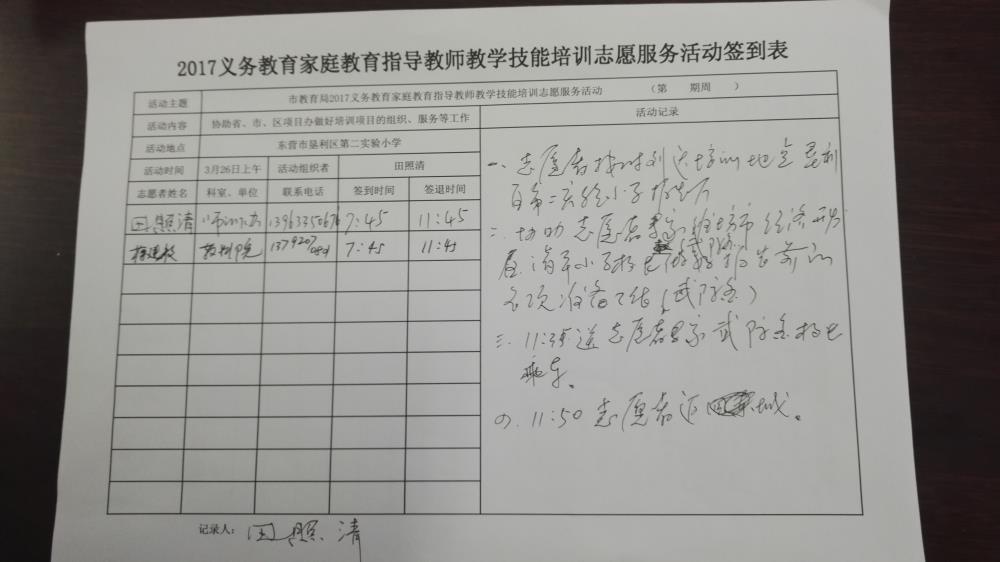 2017义务教育家庭教育指导教师教学技能培训志愿服务活动签到表
活动主题 市教育局2017义务教育家庭教育指导教师教学技能培训志愿服务活动 （第 期周 ）
活动内容 协助省、市、区项目办做好培训项目的组织、服务等工作 活动记录
活动地点 东营市垦利区第二实验小学
活动时间 3月26日上午 活动组织者 田照清
志愿者姓名 科室、单位 联系电话 签到时间 签退时间
田照清 7:45 11:45
教科院 7:45 11:45
一、志愿者按时到达培训地点垦利
区第二实验小学报告厅
二、协助志愿者 潍坊市经济开发
区 小学校长 报告前的
各项准备工作
三、11:35送志愿者 校长
乘车。
四、11:50志愿者返 城。
记录人： 田照清